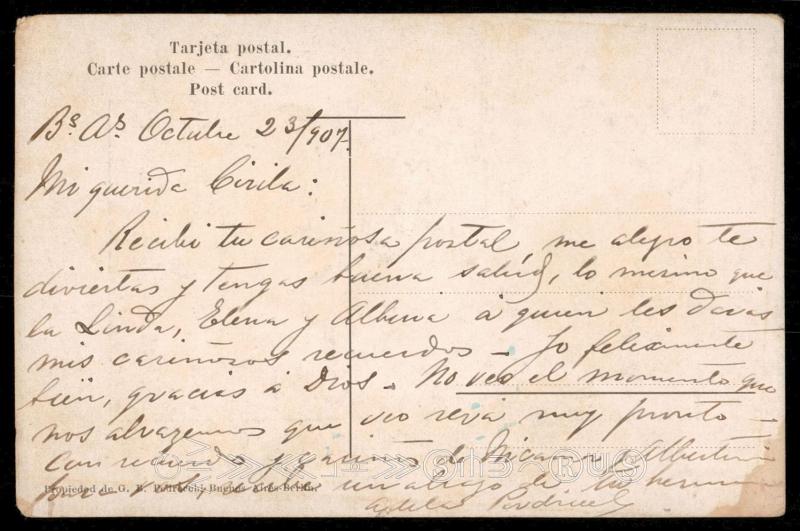 Tarjeta postal.
Carte postale — Cartolina postale.
Post card.
Bs. As. Octubre 23/907.
Mi querida Cirila:
Recibi tu cariñosa postal me alegro te
diviertas y tengas buena salud, lo mismo que
la Linda, Elena y Albina á quien les daras
mis cariñosos recuerdos — Yo felizmente
bien, gracias á Dios. No veo el momento que
nos abrazemos que creo será muy pronto —
con recuerdo y cariños de Nicanor Albertina
para vos, recibe un abrazo de tu
Adela
Propiedad de G. B. Pedrocchi-Buenos Aires-Berlin.